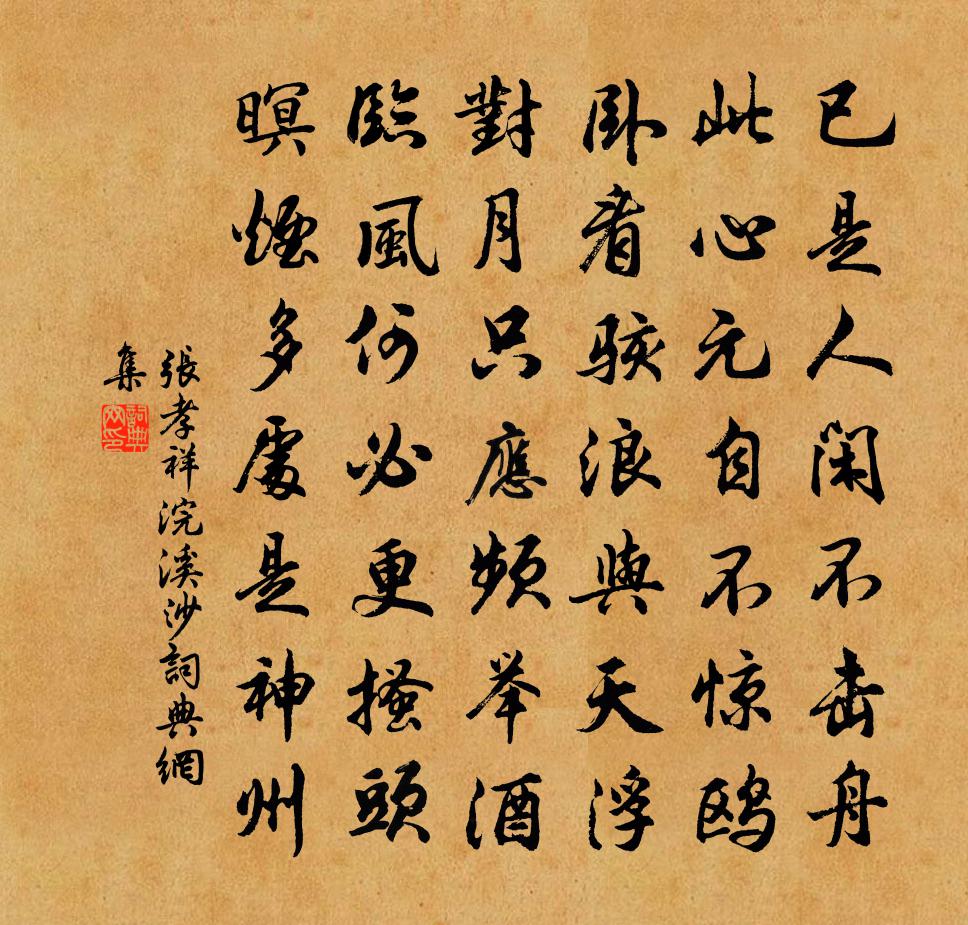 已是人閑不击舟
此心元自不惊鸥
卧看骇浪與天浮
對月只應频举酒
臨風何必更搔頭
暝煙多處是神州
張孝祥浣溪沙詞典網
集
詞典
网印